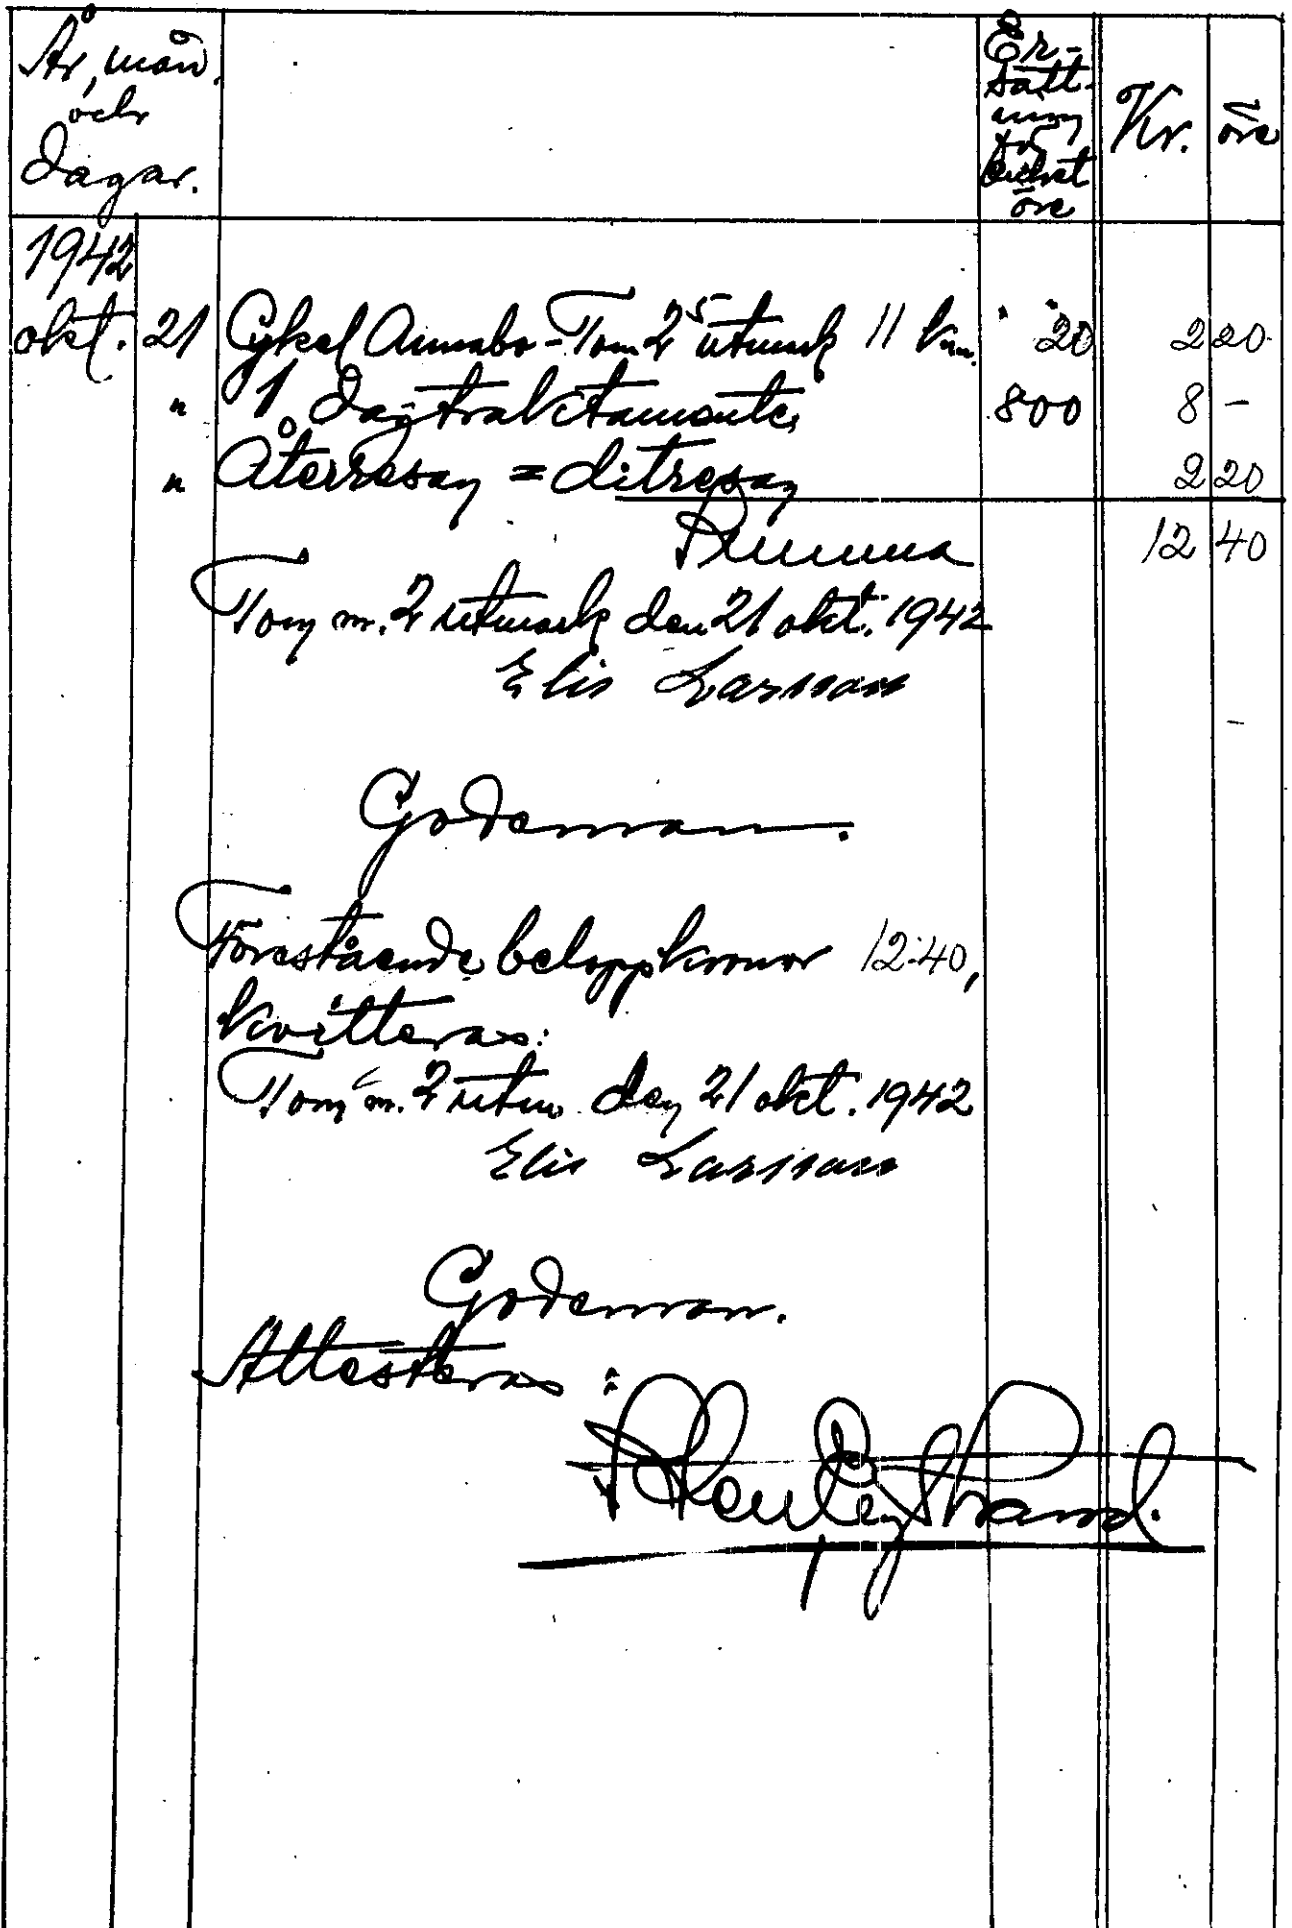 År, mån.
och
dagar.
Er-
sätt-
ning
för
enhet
öre
Kr. öre
1942
okt. 21 Cykel Annabo - Tom 2 utmark 11 km. 20 2 20
" 1 dagtraktamente, 800 8 -
" Återresan = ditresan 2 20
Summa 12 40
Tom m. 2 utmark den 21 okt. 1942
Elis Larsson
Godeman.
Förestående belopp kronor 12:40,
kvitteras:
Tom m. 2 utm. den 21 okt. 1942
Elis Larsson
Godeman.
Attesteras:
Strand.